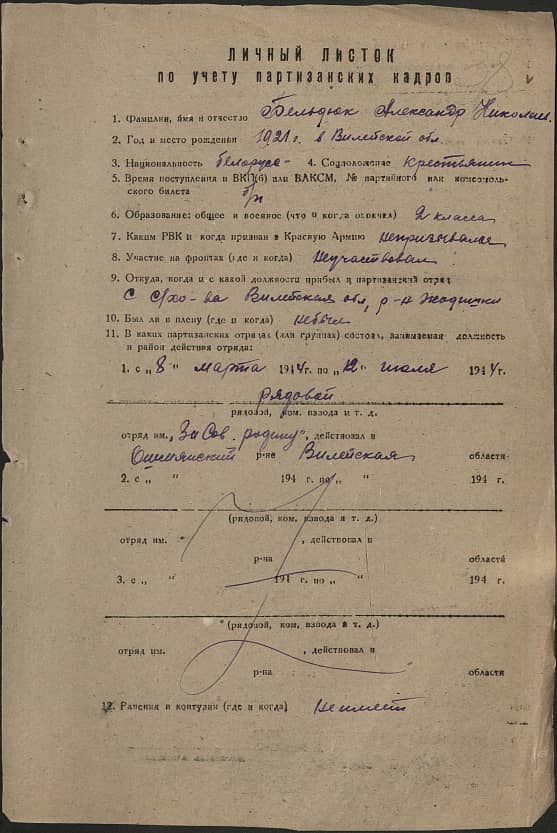 ЛИЧНЫЙ ЛИСТОК
по учету партизанских кадров
1. Фамилия, имя и отчество Бельдюк Александр Николаев.
2. Год и место рождения 1921 г. в Вилейской обл.
3. Национальность белорус 4. Соцположение Крестьянин
5. Время поступления в ВКП(б) или ВЛКСМ, № партийного или комсомоль-
ского билета б/п
6. Образование: общее и военное (что и когда окончил) 2 класса
7. Каким РВК и когда призван в Красную Армию непризывался
8. Участие на фронтах (где и когда) Неучаствовал
9. Откуда, когда и с какой должности прибыл в партизанский отряд
С с/хо-ва Вилейская обл, р-н Жодишки
10. Был ли в плену (где и когда) небыл
11. В каких партизанских отрядах (или группах) состоял, занимаемая должность
и район действия отряда:
1. с „ 8 " марта 1944 г. по „ 12 " июля 1944 г.
рядовой
рядовой, ком. взвода и т. д.
отряд им. „За Сов. родину", действовал в
Ошмянский р-не Вилейская области
2. с „ " 194 г. по „ " 194 г.
(рядовой, ком. взвода и т. д.)
отряд им. , действовал в
р-на области
3. с „ " 194 г. по „ " 194 г.
(рядовой, ком. взвода и т. д.)
отряд им. , действовал в
р-на области
12. Ранения и контузии (где и когда) Неимеет